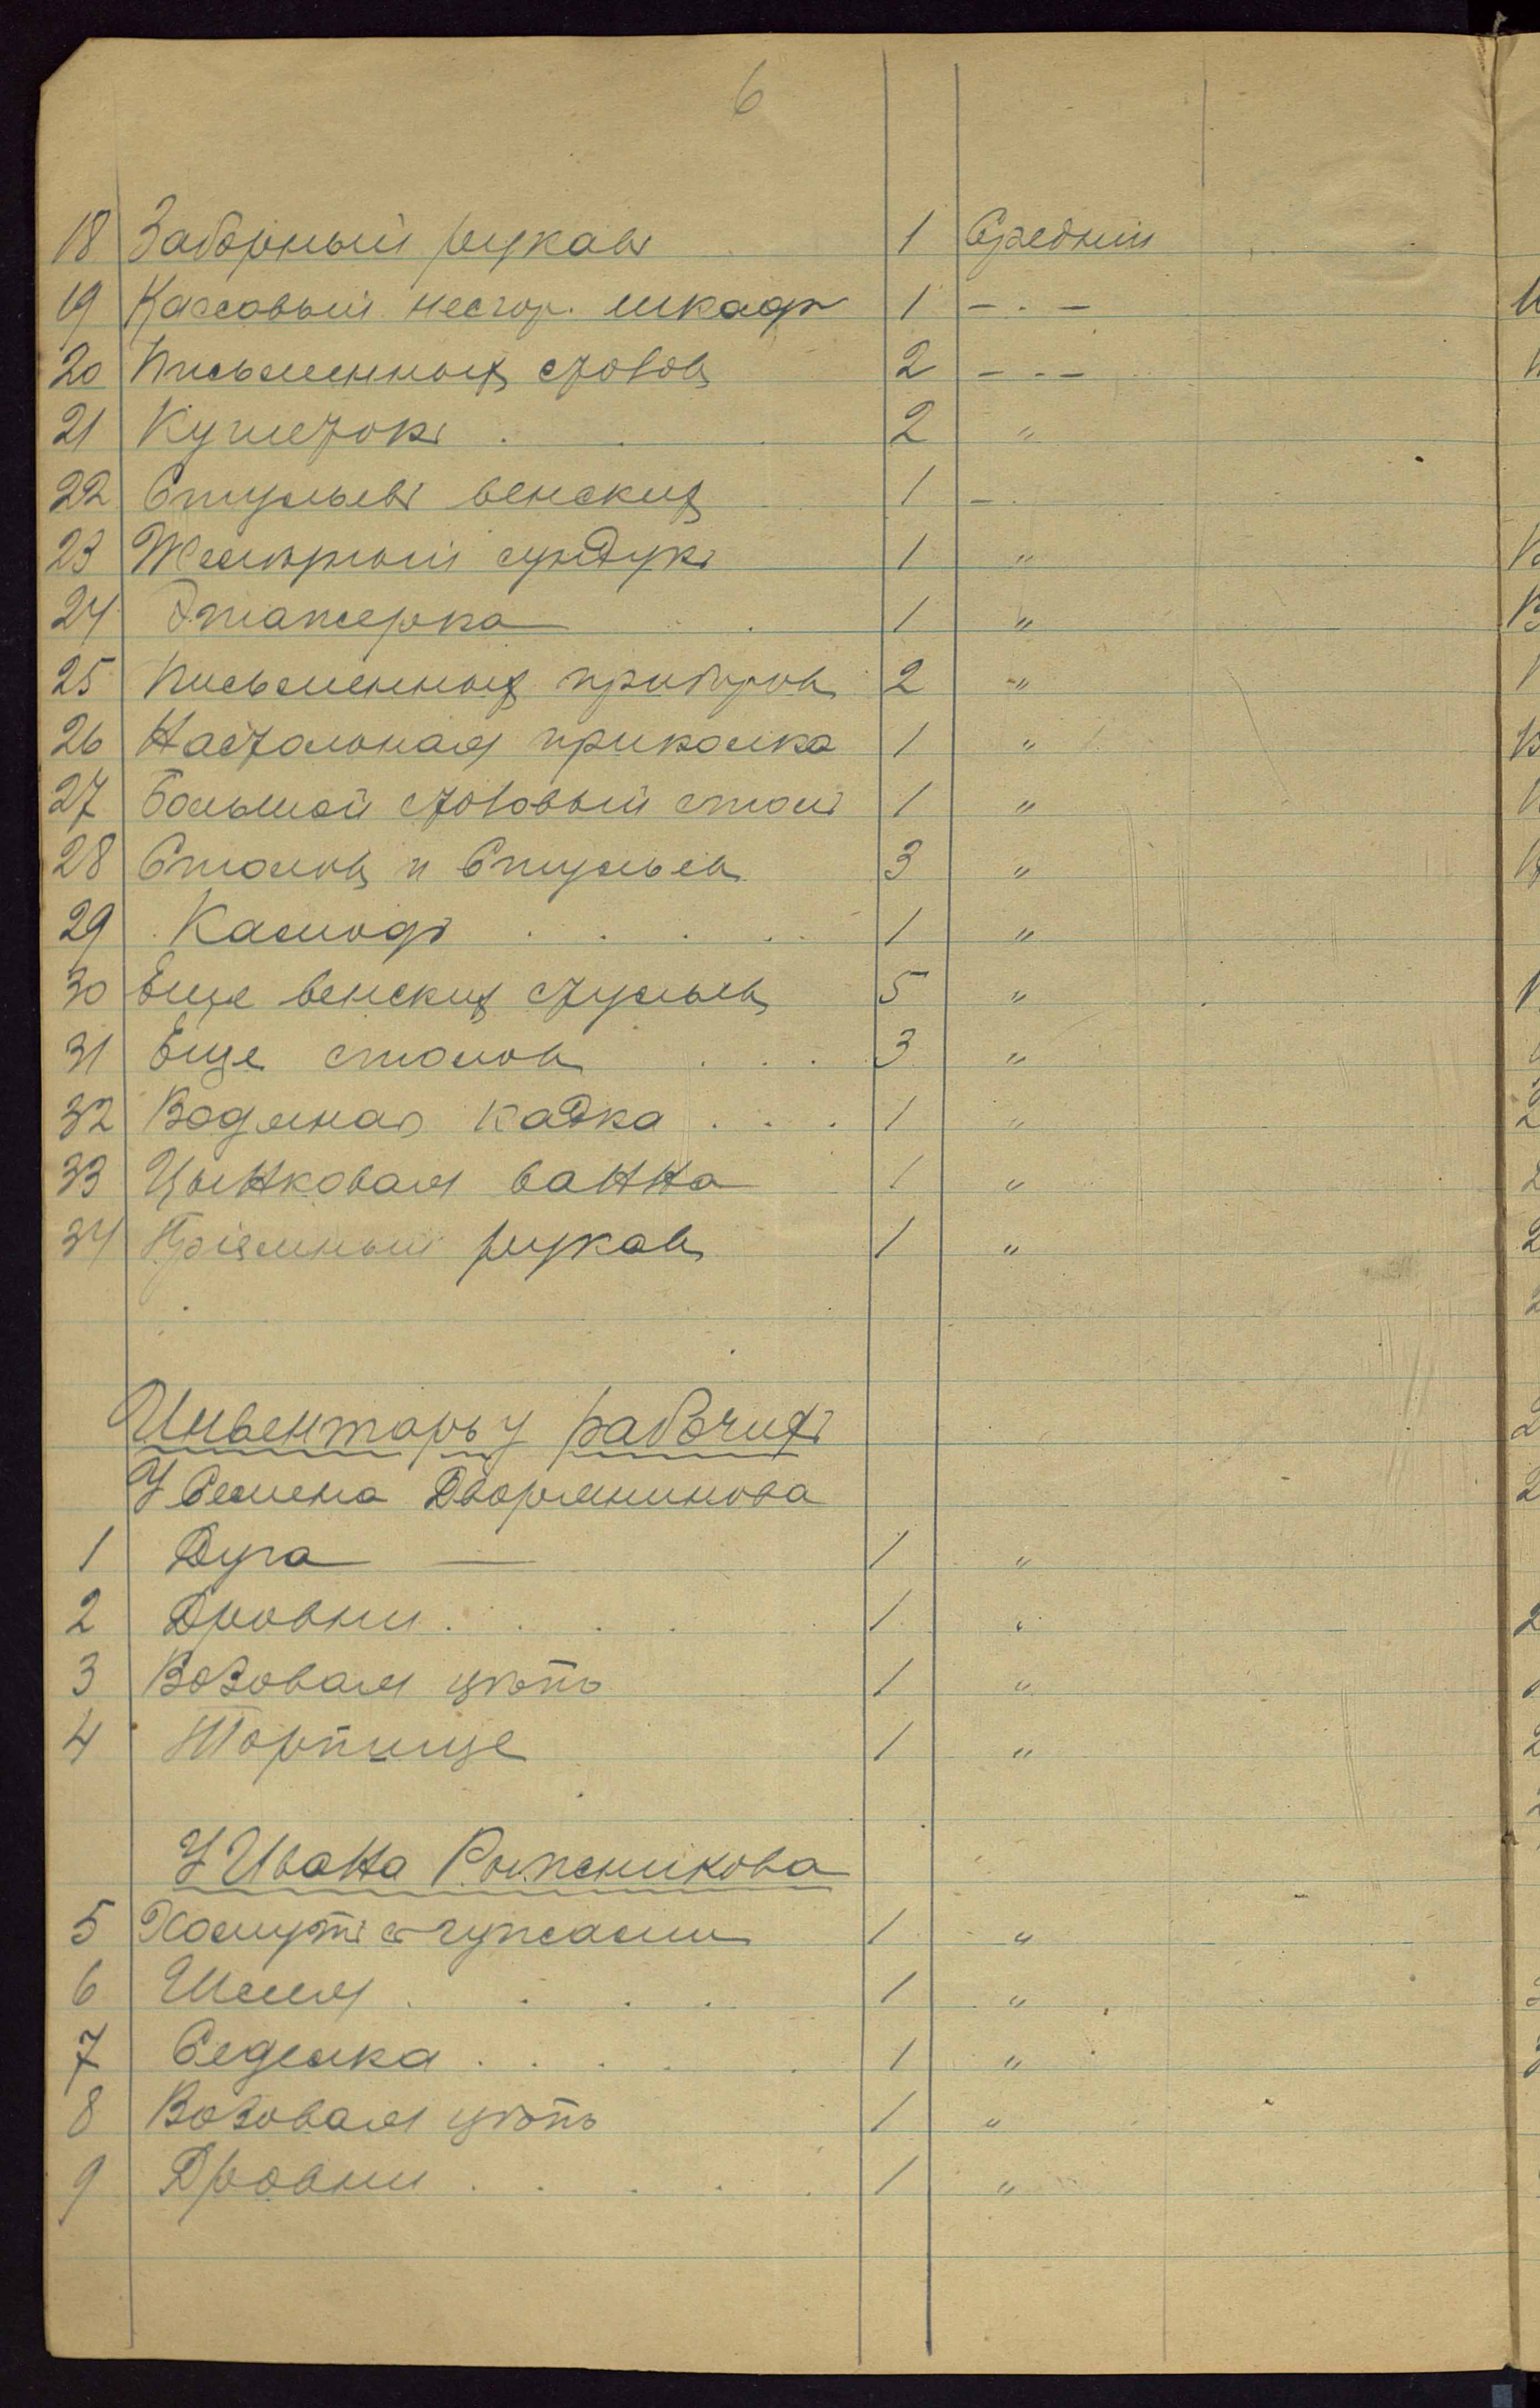 6
18 Заборный рукавъ 1 Средний
19 Кассовый несгор. шкафъ 1 – . –
20 Письменных столов 2 – . –
21 Кушетокъ . . . 2 "
22 Стульевъ венских 1 – .
23 сундукъ 1 "
24 Этажерка . . 1 "
25 Письменных приборов 2 "
26 Настольная 1 "
27 Большой столовый столъ 1 "
28 Столов и Стульев 3 "
29 Камодъ . . . . . 1 "
30 Еще венских стульев 5 "
31 Еще столов . . . 3 "
32 Водяная кадка . . . 1 "
33 Цынковая ванна 1 "
34 Пріемный рукав 1 "
Инвентарь у рабочихъ
У Семена Дворянинова
1 Дуга — 1 "
2 Дровни . . . . 1 "
3 Возовая цѣпь 1 "
4 Торпище 1 "
У Ивана Рыжникова
5 Хомутъ с гужами 1 "
6 Шлея . . . . 1 "
7 Седелка . . . . 1 "
8 Возовая цѣпь 1 "
9 Дровни . . . . . 1 "